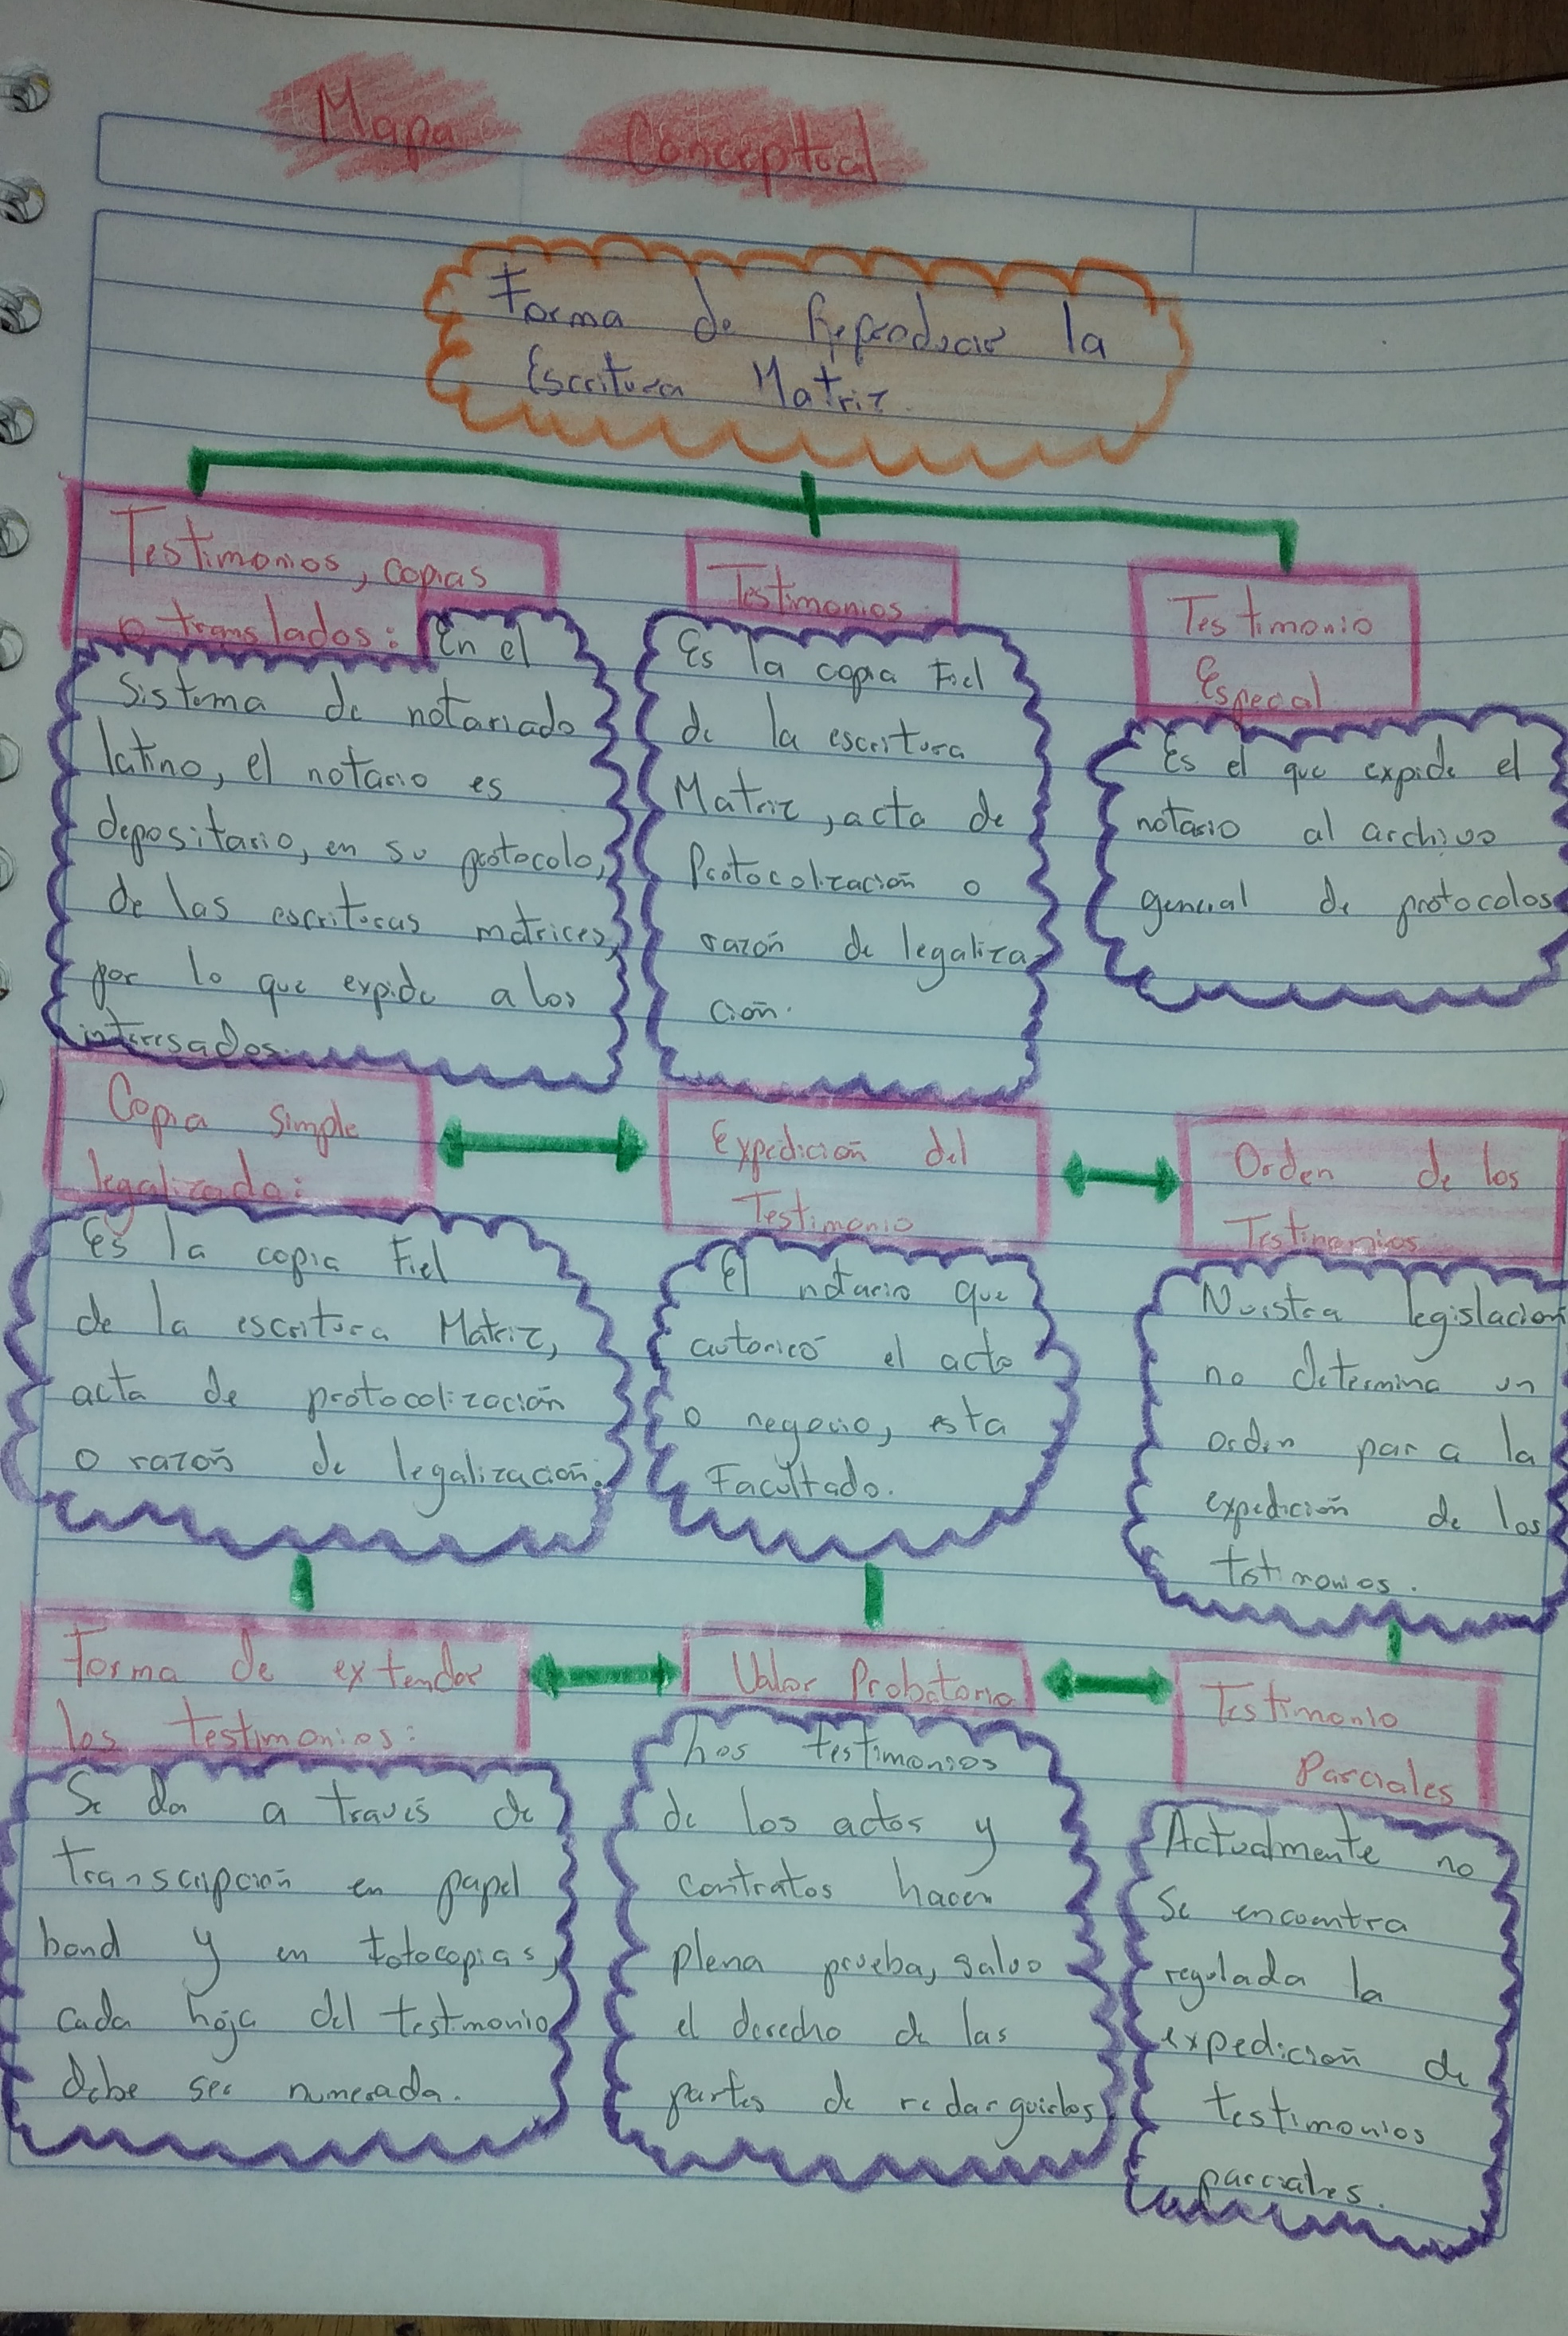 Mapa Conceptual
Forma de Reproducir la
Escritura Matriz.
Testimonios, copias
o translados:
En el
sistema de notariado
latino, el notario es
depositario, en su protocolo,
de las escrituras matrices,
por lo que expide a los
interesados.
Testimonios
Es la copia Fiel
de la escritura
Matriz, acta de
Protocolización o
razón de legaliza
ción.
Testimonio
Especial
Es el que expide el
notario al archivo
general de protocolos
Copia simple
legalizada:
Es la copia Fiel
de la escritura Matriz,
acta de protocolización
o razón de legalización.
Expedición del
Testimonio
El notario que
autoricó el acto
o negocio, esta
Facultado.
Orden de los
Testimonios
Nuestra legislación
no determina un
orden par a la
expedición de los
totimonios.
Forma de extender
los testimonios:
Se da a través de
transcripción en papel
bond y en fotocopias,
cada hoja del testimonio
debe ser numerada.
Valor Probatorio
Los testimonios
de los actos y
contratos hacen
plena prueba, salvo
el derecho de las
partes de redarguirlos
Testimonio
Parciales
Actualmente no
se encuentra
regulada la
expedición de
testimonios
parciales.